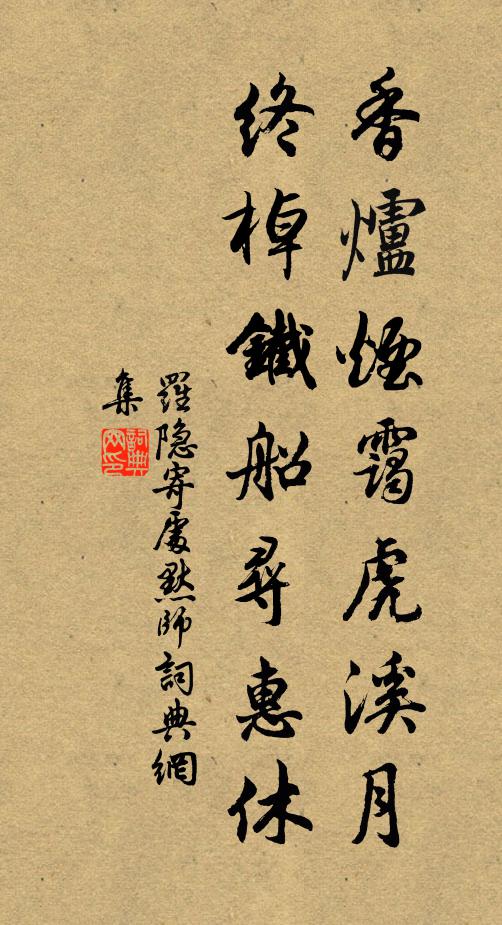 香爐煙靄虎溪月
終棹鐵船尋惠休
羅隐寄處默師詞典網
集
詞典網印